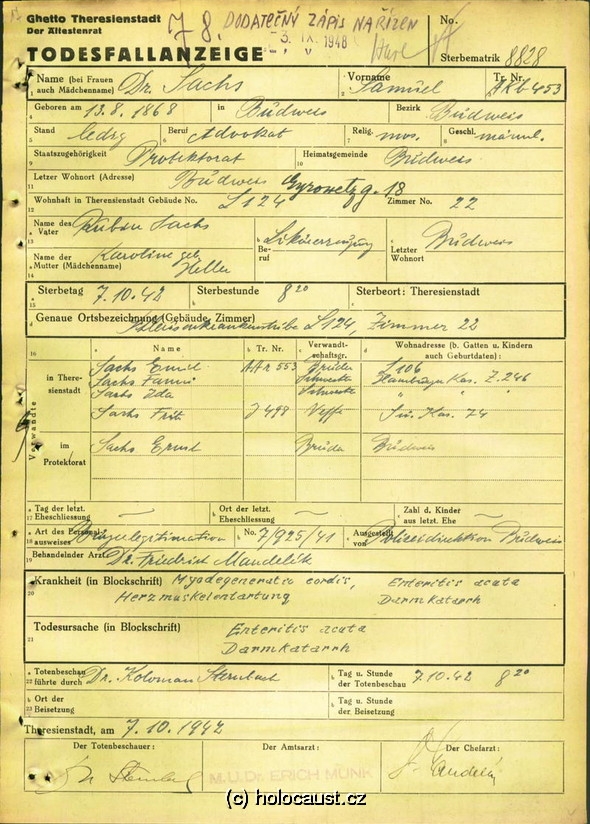 Ghetto Theresienstadt
Der Ältestenrat
78. DODATEČNÝ ZÁPIS NAŘÍZEN
3. IX. 1948
No.
TODESFALLANZEIGE
Sterbematrik 8828
1 Name (bei Frauen auch Mädchenname) Dr. Sachs
2 Vorname Samuel
3 Tr. Nr. Akb 453
4 Geboren am 13.8.1868 in Budweis Bezirk Budweis
5 Stand ledig 6 Beruf Advokat 7 Relig. mos. 8 Geschl. männl.
9 Staatszugehörigkeit Protektorat 10 Heimatsgemeinde Budweis
11 Letzer Wohnort (Adresse) Budweis Gyrowetzg. 18
12 Wohnhaft in Theresienstadt Gebäude No. L 124 Zimmer No. 22
13 Name des Vater Sachs b Beruf Likörerzeugung c Letzter Wohnort Budweis
14 Name der Mutter (Mädchenname) Karoline geb. Heller
15 Sterbetag 7.10.42 Sterbestunde 8 20 Sterbeort: Theresienstadt
Genaue Ortsbezeichnung (Gebäude, Zimmer) L 124, Zimmer 22
16 Verwandte
a Name b Tr. Nr. c Verwandtschaftsgr. d Wohnadresse (b. Gatten u. Kindern auch Geburtdaten):
in Theresienstadt
Sachs Ernst 553 Bruder L 106
Sachs Fanni Schwester Hamburger Kas. Z. 246
Sachs Ida Schwester " " "
Sachs Fritz J 498 Neffe Kas. 74
im Protektorat
Sachs Ernst Bruder Budweis
17 a Tag der letzt. Eheschliessung — b Ort der letzt. Eheschliessung — c Zahl d. Kinder aus letzt. Ehe —
18 a Art des Personalausweises Bürgerlegitimation b No. 7/925/41 c Ausgestellt von Polizeidirektion Budweis
19 Behandelnder Arzt Dr. Friedrich Mandelík
20 Krankheit (in Blockschrift) Myodegeneratio cordis, Enteritis acuta
Herzmuskelentartung Darmkatarrh
21 Todesursache (in Blockschrift) Enteritis acuta
Darmkatarrh
22 a Totenbeschau führte durch Dr. Koloman Sternbach b Tag u. Stunde der Totenbeschau 7.10.42 8 20
23 a Ort der Beisetzung b Tag u. Stunde der Beisetzung
Theresienstadt, am 7.10.1942
Der Totenbeschauer: Der Amtsarzt: Der Chefarzt:
M.U.Dr. ERICH MUNK
(c) holocaust.cz